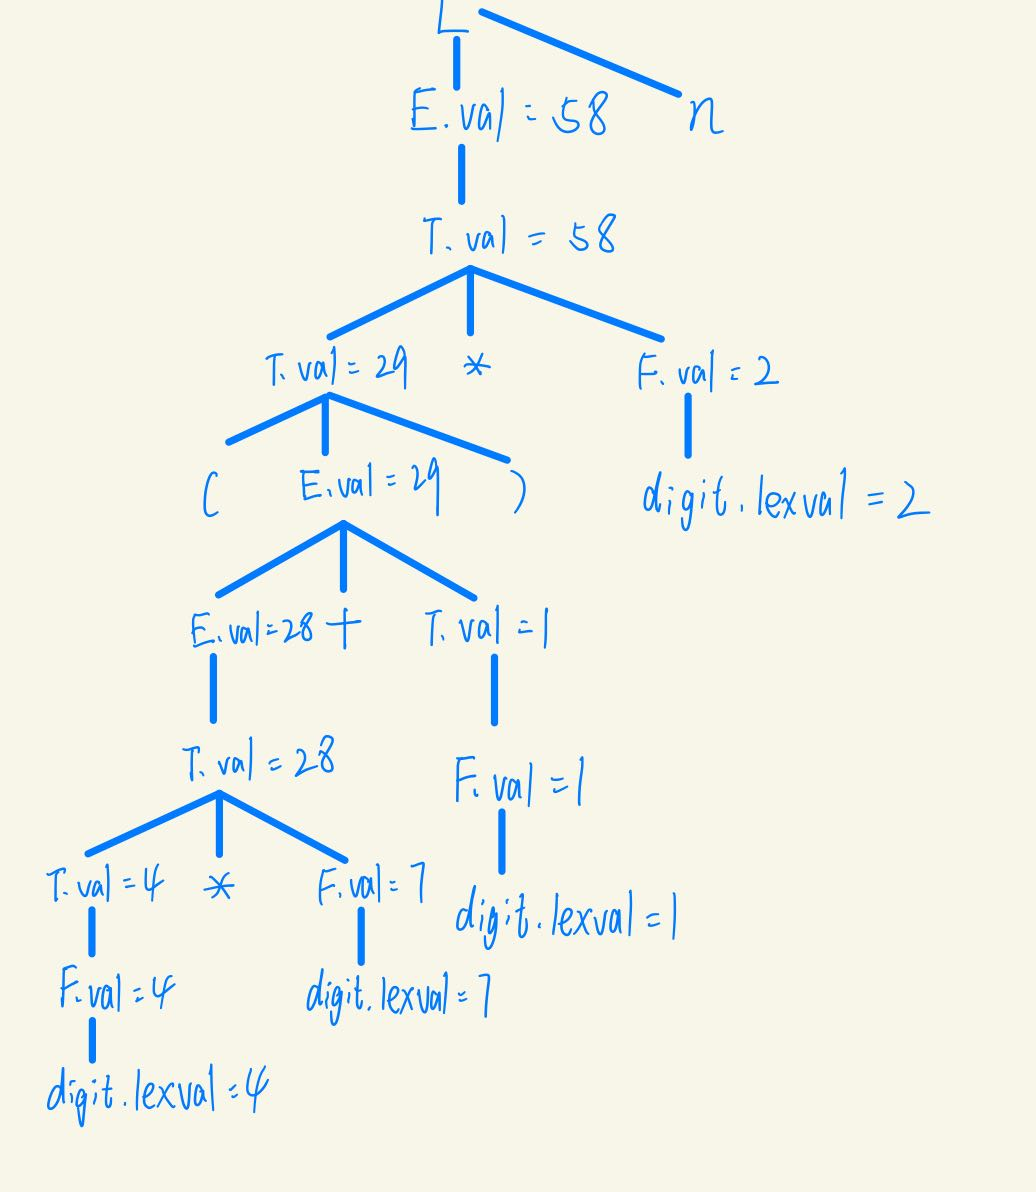 L
E.val = 58 n
T.val = 58
T.val = 29 * F.val = 2
( E.val = 29 ) digit.lexval = 2
E.val = 28 + T.val = 1
T.val = 28
F.val = 1
T.val = 4 * F.val = 7
digit.lexval = 1
F.val = 4 digit.lexval = 7
digit.lexval = 4